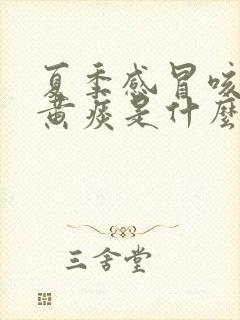 夏季感冒咳
黄痰是什麽
三舍堂